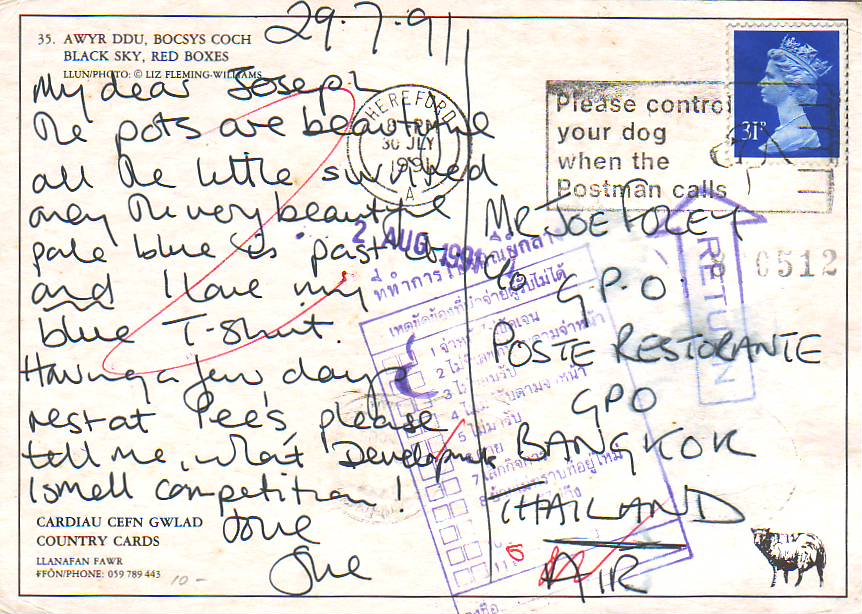 29.7.91
35. AWYR DDU, BOCSYS COCH
BLACK SKY, RED BOXES
LLUN/PHOTO: © LIZ FLEMING-WILLIAMS
My dear Joseph
The pots are beautiful
all the little swirled
ones the very beautiful
pale blue is past it
and I love my
blue T-shirt.
Having a few days
rest at Pee's, please
tell me, what Developments
I smell competition!
love
She
CARDIAU CEFN GWLAD
COUNTRY CARDS
LLANAFAN FAWR
FFÔN/PHONE: 059 789 443
10-
HEREFORD
PM
30 JLY
1991
A
Please control
your dog
when the
Postman calls
31P
2 AUG 1991
RETURN
6512
MR JOE FOLEY
c/o G.P.O.
POSTE RESTORANTE
GPO
BANGKOK
THAILAND
AIR
เหตุขัดข้องที่นำจ่ายผู้รับไม่ได้